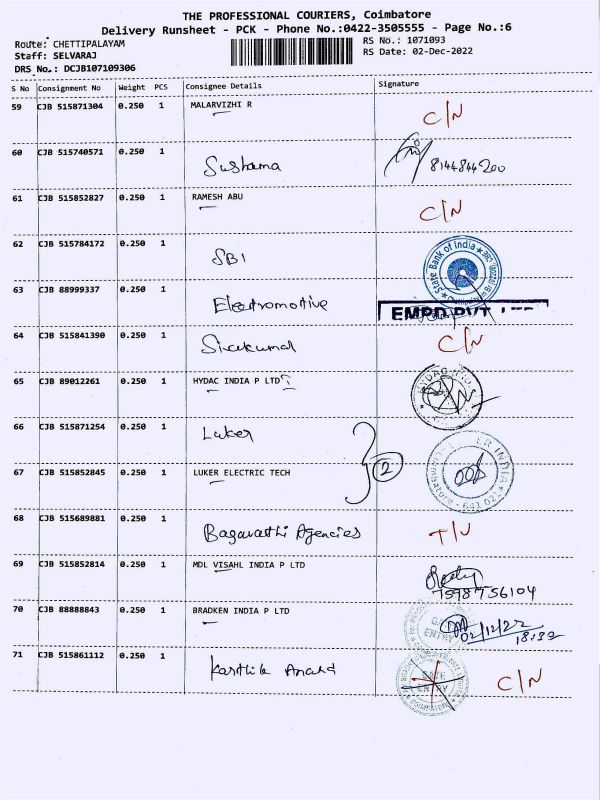 THE PROFESSIONAL COURIERS, Coimbatore
Delivery Runsheet - PCK - Phone No.:0422-3505555 - Page No.:6
Route: CHETTIPALAYAM RS No.: 1071093
Staff: SELVARAJ RS Date: 02-Dec-2022
DRS No.: DCJB107109306
S No Consignment No Weight PCS Consignee Details Signature
59 CJB 515871304 0.250 1 MALARVIZHI R C/N
60 CJB 515740571 0.250 1 Sushama 8144844200
61 CJB 515852827 0.250 1 RAMESH ABU C/N
62 CJB 515784172 0.250 1 SBI State Bank of India
63 CJB 88999337 0.250 1 Electromotive EMPD PVT LTD
64 CJB 515841390 0.250 1 Sivakumal C/N
65 CJB 89012261 0.250 1 HYDAC INDIA P LTD
66 CJB 515871254 0.250 1 Luker
2
67 CJB 515852845 0.250 1 LUKER ELECTRIC TECH
68 CJB 515689881 0.250 1 Bagavathi Agencies
69 CJB 515852814 0.250 1 MDL VISAHL INDIA P LTD 7598756104
70 CJB 88888843 0.250 1 BRADKEN INDIA P LTD 02/12/22
71 CJB 515861112 0.250 1 Karthik Anand GATE ENTRY C/N